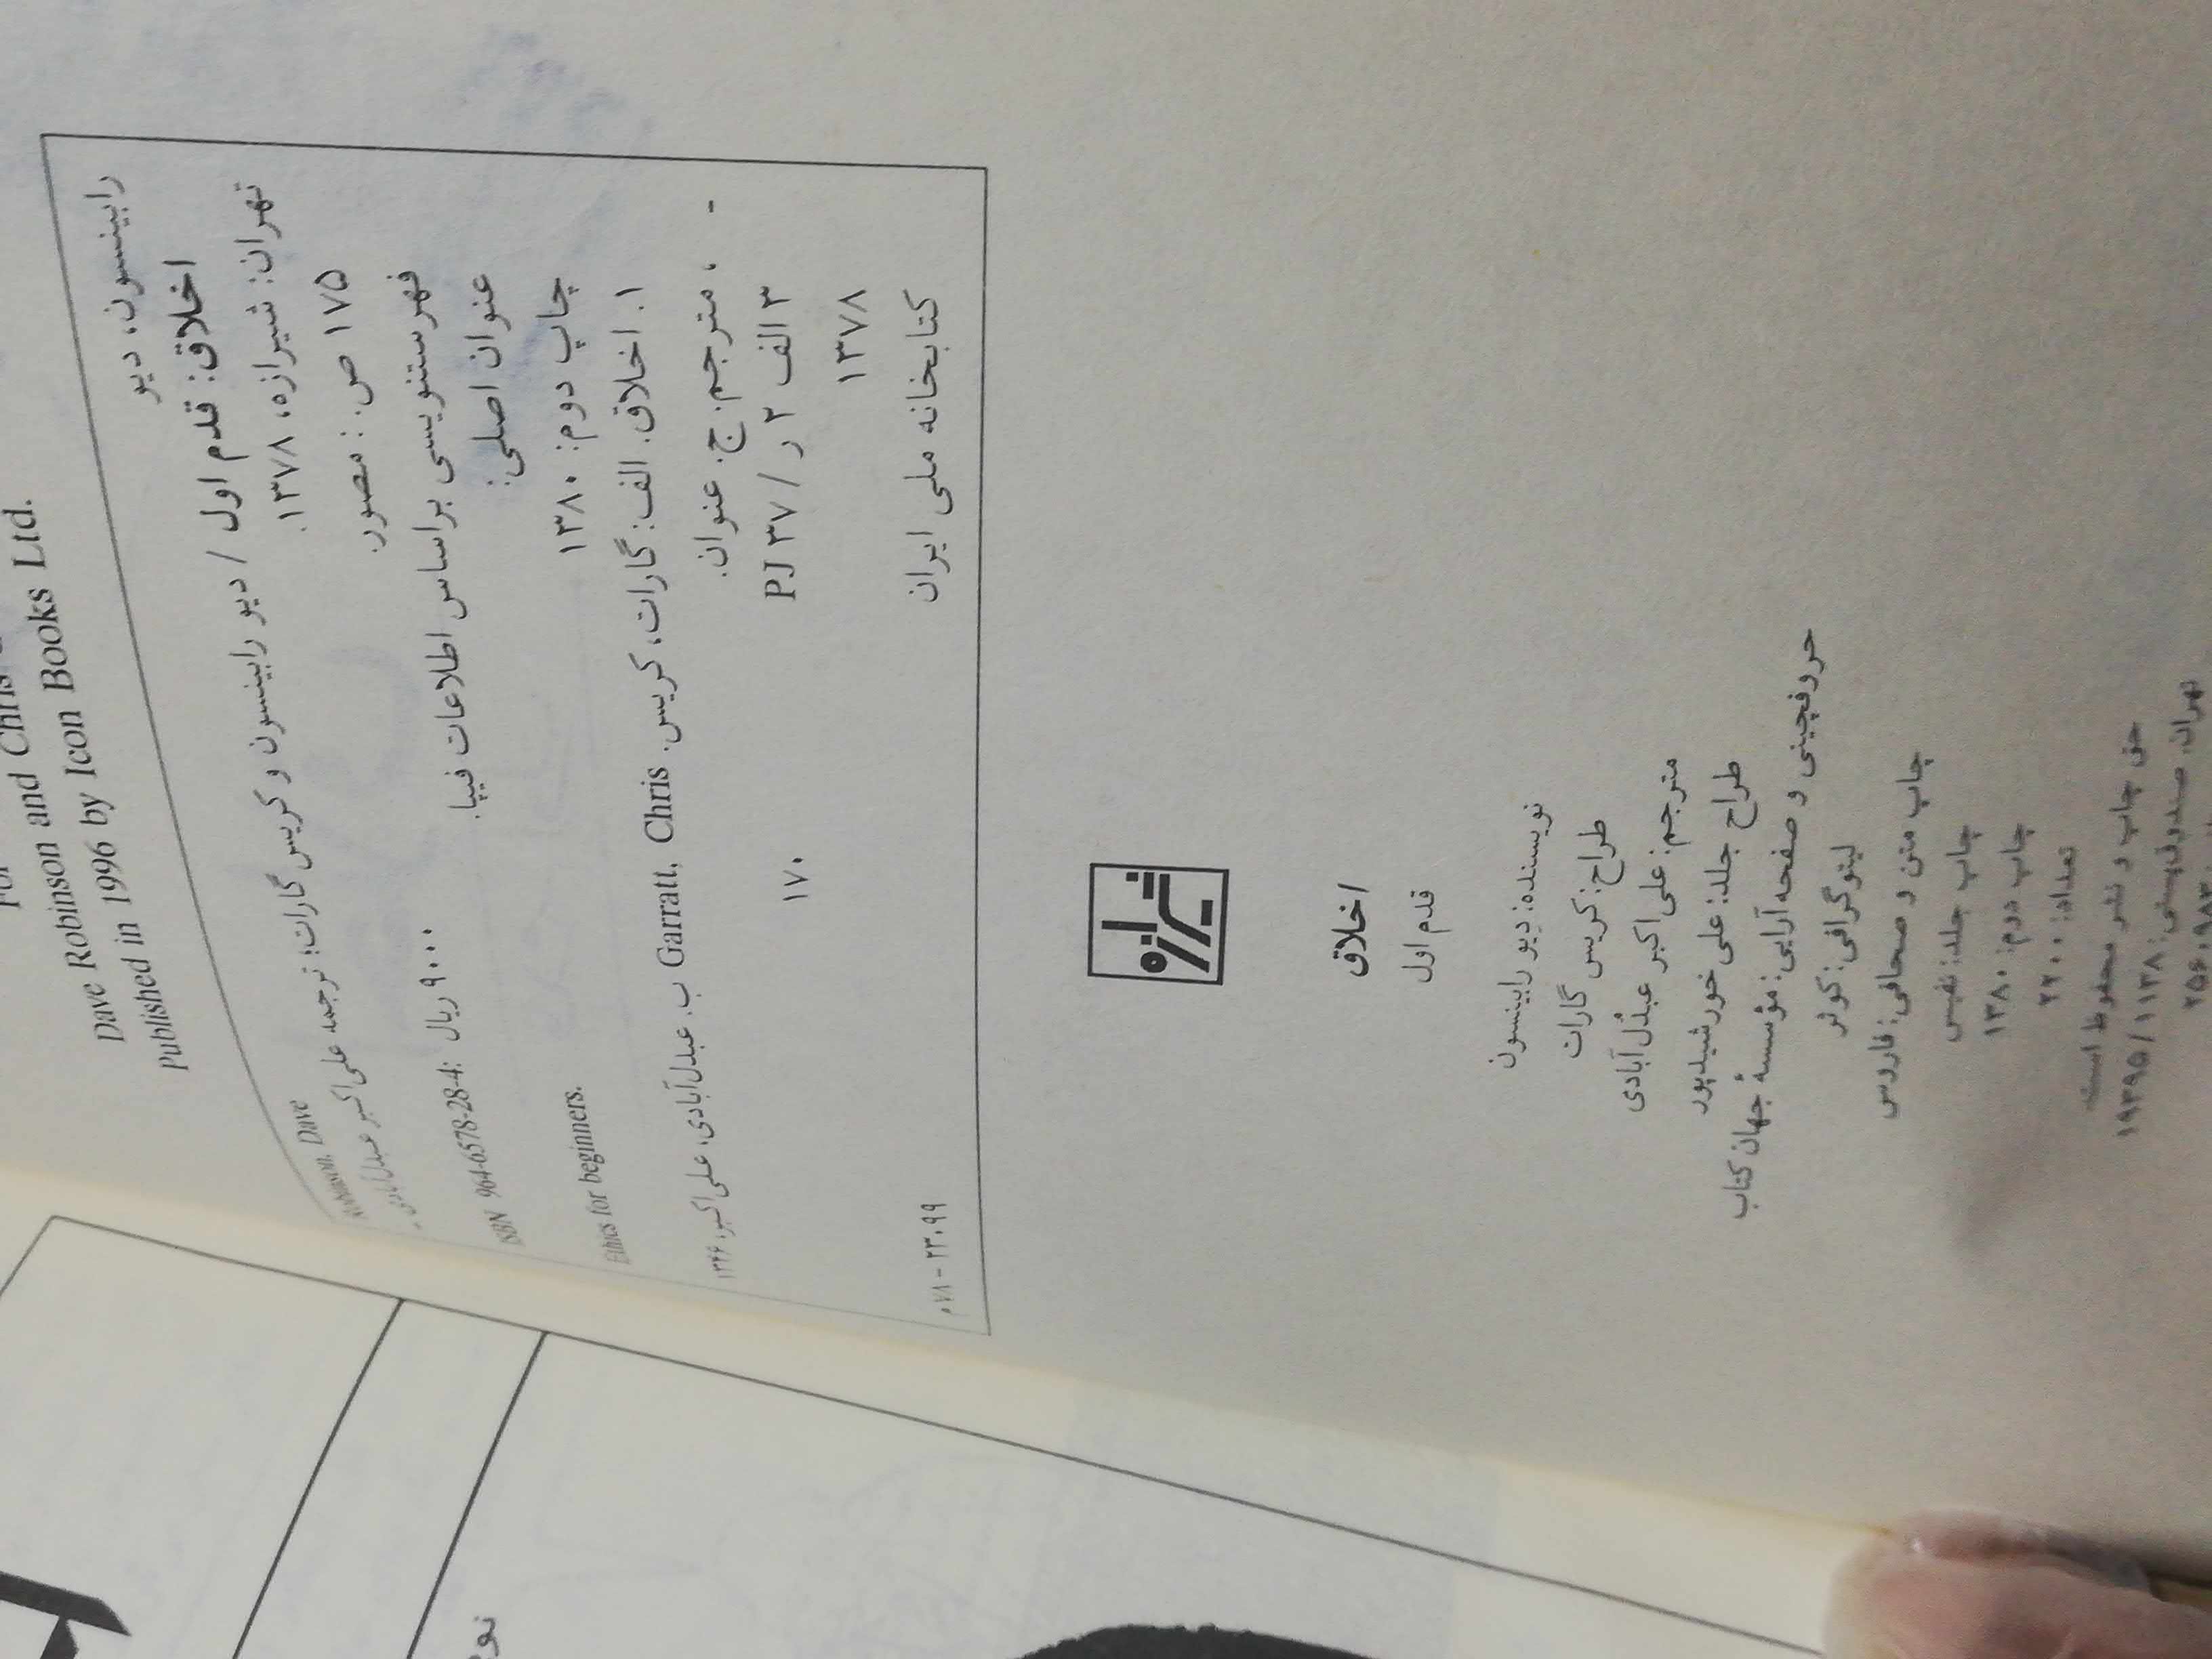 Dave Robinson and Chris
Published in 1996 by Icon Books Ltd.
رابینسون، دیو
Robinson, Dave
اخلاق: قدم اول / دیو رابینسون و کریس گارات؛ ترجمه علی‌اکبر عبدل‌آبادی. ـ
تهران: شیرازه، ۱۳۷۸.
۱۷۵ ص. : مصور.
ISBN 964-6578-28-4: ۹۰۰۰ ریال
فهرستنویسی براساس اطلاعات فیپا.
عنوان اصلی:
Ethics for beginners.
چاپ دوم: ۱۳۸۰
۱. اخلاق. الف: گارات، کریس. Garratt, Chris ب. عبدل‌آبادی، علی‌اکبر، ۱۳۴۶
- ، مترجم. ج. عنوان.
۳ الف ۲ ر / ۳۷ PJ
۱۷۰
۱۳۷۸
کتابخانه ملی ایران
۲۳۰۹۹ - ۷۸م
شیرازه
اخلاق
قدم اول
نویسنده: دیو رابینسون
طراح: کریس گارات
مترجم: علی‌اکبر عبدُل‌آبادی
طراح جلد: علی خورشیدپور
حروفچینی و صفحه‌آرایی: مؤسسهٔ جهان کتاب
لیتوگرافی: کوثر
چاپ متن و صحافی: فاروس
چاپ جلد: نفیس
چاپ دوم: ۱۳۸۰
تعداد: ۲۲۰۰
حق چاپ و نشر محفوظ است.
تهران، صندوق‌پستی: ۱۱۳۸ / ۱۹۳۹۵
نو